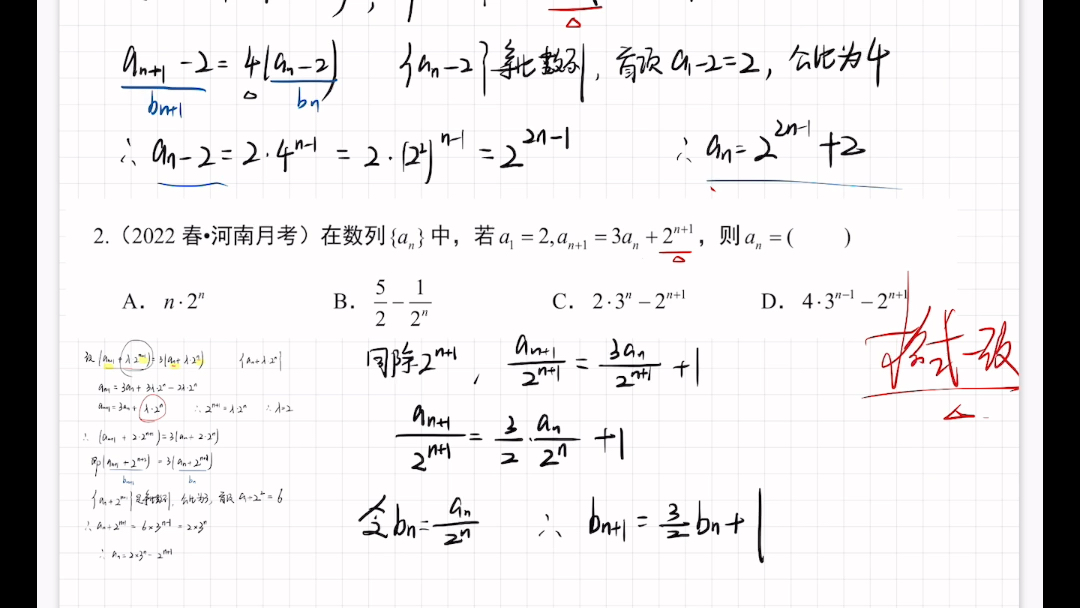 aₙ₊₁ - 2 = 4(aₙ - 2) {aₙ - 2}等比数列, 首项 a₁ - 2 = 2, 公比为4
bₙ₊₁ bₙ
∴ aₙ - 2 = 2·4ⁿ⁻¹ = 2·(2²)ⁿ⁻¹ = 2²ⁿ⁻¹ ∴ aₙ = 2²ⁿ⁻¹ + 2
2.（2022 春•河南月考）在数列{aₙ}中，若a₁ = 2, aₙ₊₁ = 3aₙ + 2ⁿ⁺¹，则aₙ = ( )
A． n·2ⁿ B． 5/2 - 1/2ⁿ C． 2·3ⁿ - 2ⁿ⁺¹ D． 4·3ⁿ⁻¹ - 2ⁿ⁺¹
格式一致
设(aₙ₊₁ + λ·2ⁿ⁺¹) = 3(aₙ + λ·2ⁿ) {aₙ + λ·2ⁿ}
aₙ₊₁ = 3aₙ + 3λ·2ⁿ - 2λ·2ⁿ
aₙ₊₁ = 3aₙ + λ·2ⁿ ∴ 2ⁿ⁺¹ = λ·2ⁿ ∴ λ=2
∴ (aₙ₊₁ + 2·2ⁿ⁺¹) = 3(aₙ + 2·2ⁿ)
即(aₙ₊₁ + 2ⁿ⁺²) = 3(aₙ + 2ⁿ⁺¹)
bₙ₊₁ bₙ
{aₙ + 2ⁿ⁺¹}是等比数列, 公比为3, 首项
∴ aₙ + 2ⁿ⁺¹ = 6×3ⁿ⁻¹ = 2×3ⁿ
∴ aₙ = 2×3ⁿ - 2ⁿ⁺¹
同除2ⁿ⁺¹, aₙ₊₁/2ⁿ⁺¹ = 3aₙ/2ⁿ⁺¹ + 1
aₙ₊₁/2ⁿ⁺¹ = 3/2·aₙ/2ⁿ + 1
令bₙ = aₙ/2ⁿ ∴ bₙ₊₁ = 3/2 bₙ + 1